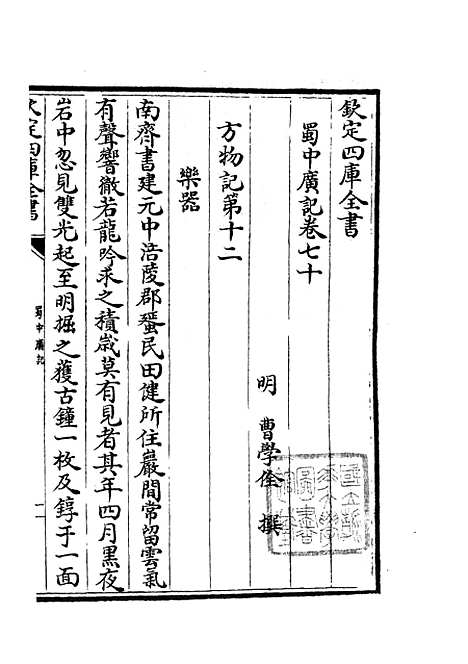 欽定四庫全書
蜀中廣記卷七十
明 曹學佺 撰
方物記第十二
樂器
南齊書建元中涪陵郡蜑民田健所住巖間常留雲氣
有聲響徹若龍吟求之積歲莫有見者其年四月黑夜
岩中忽見雙光起至明掘之獲古鐘一枚及錞于一面
欽定四庫全書
蜀中廣記
一